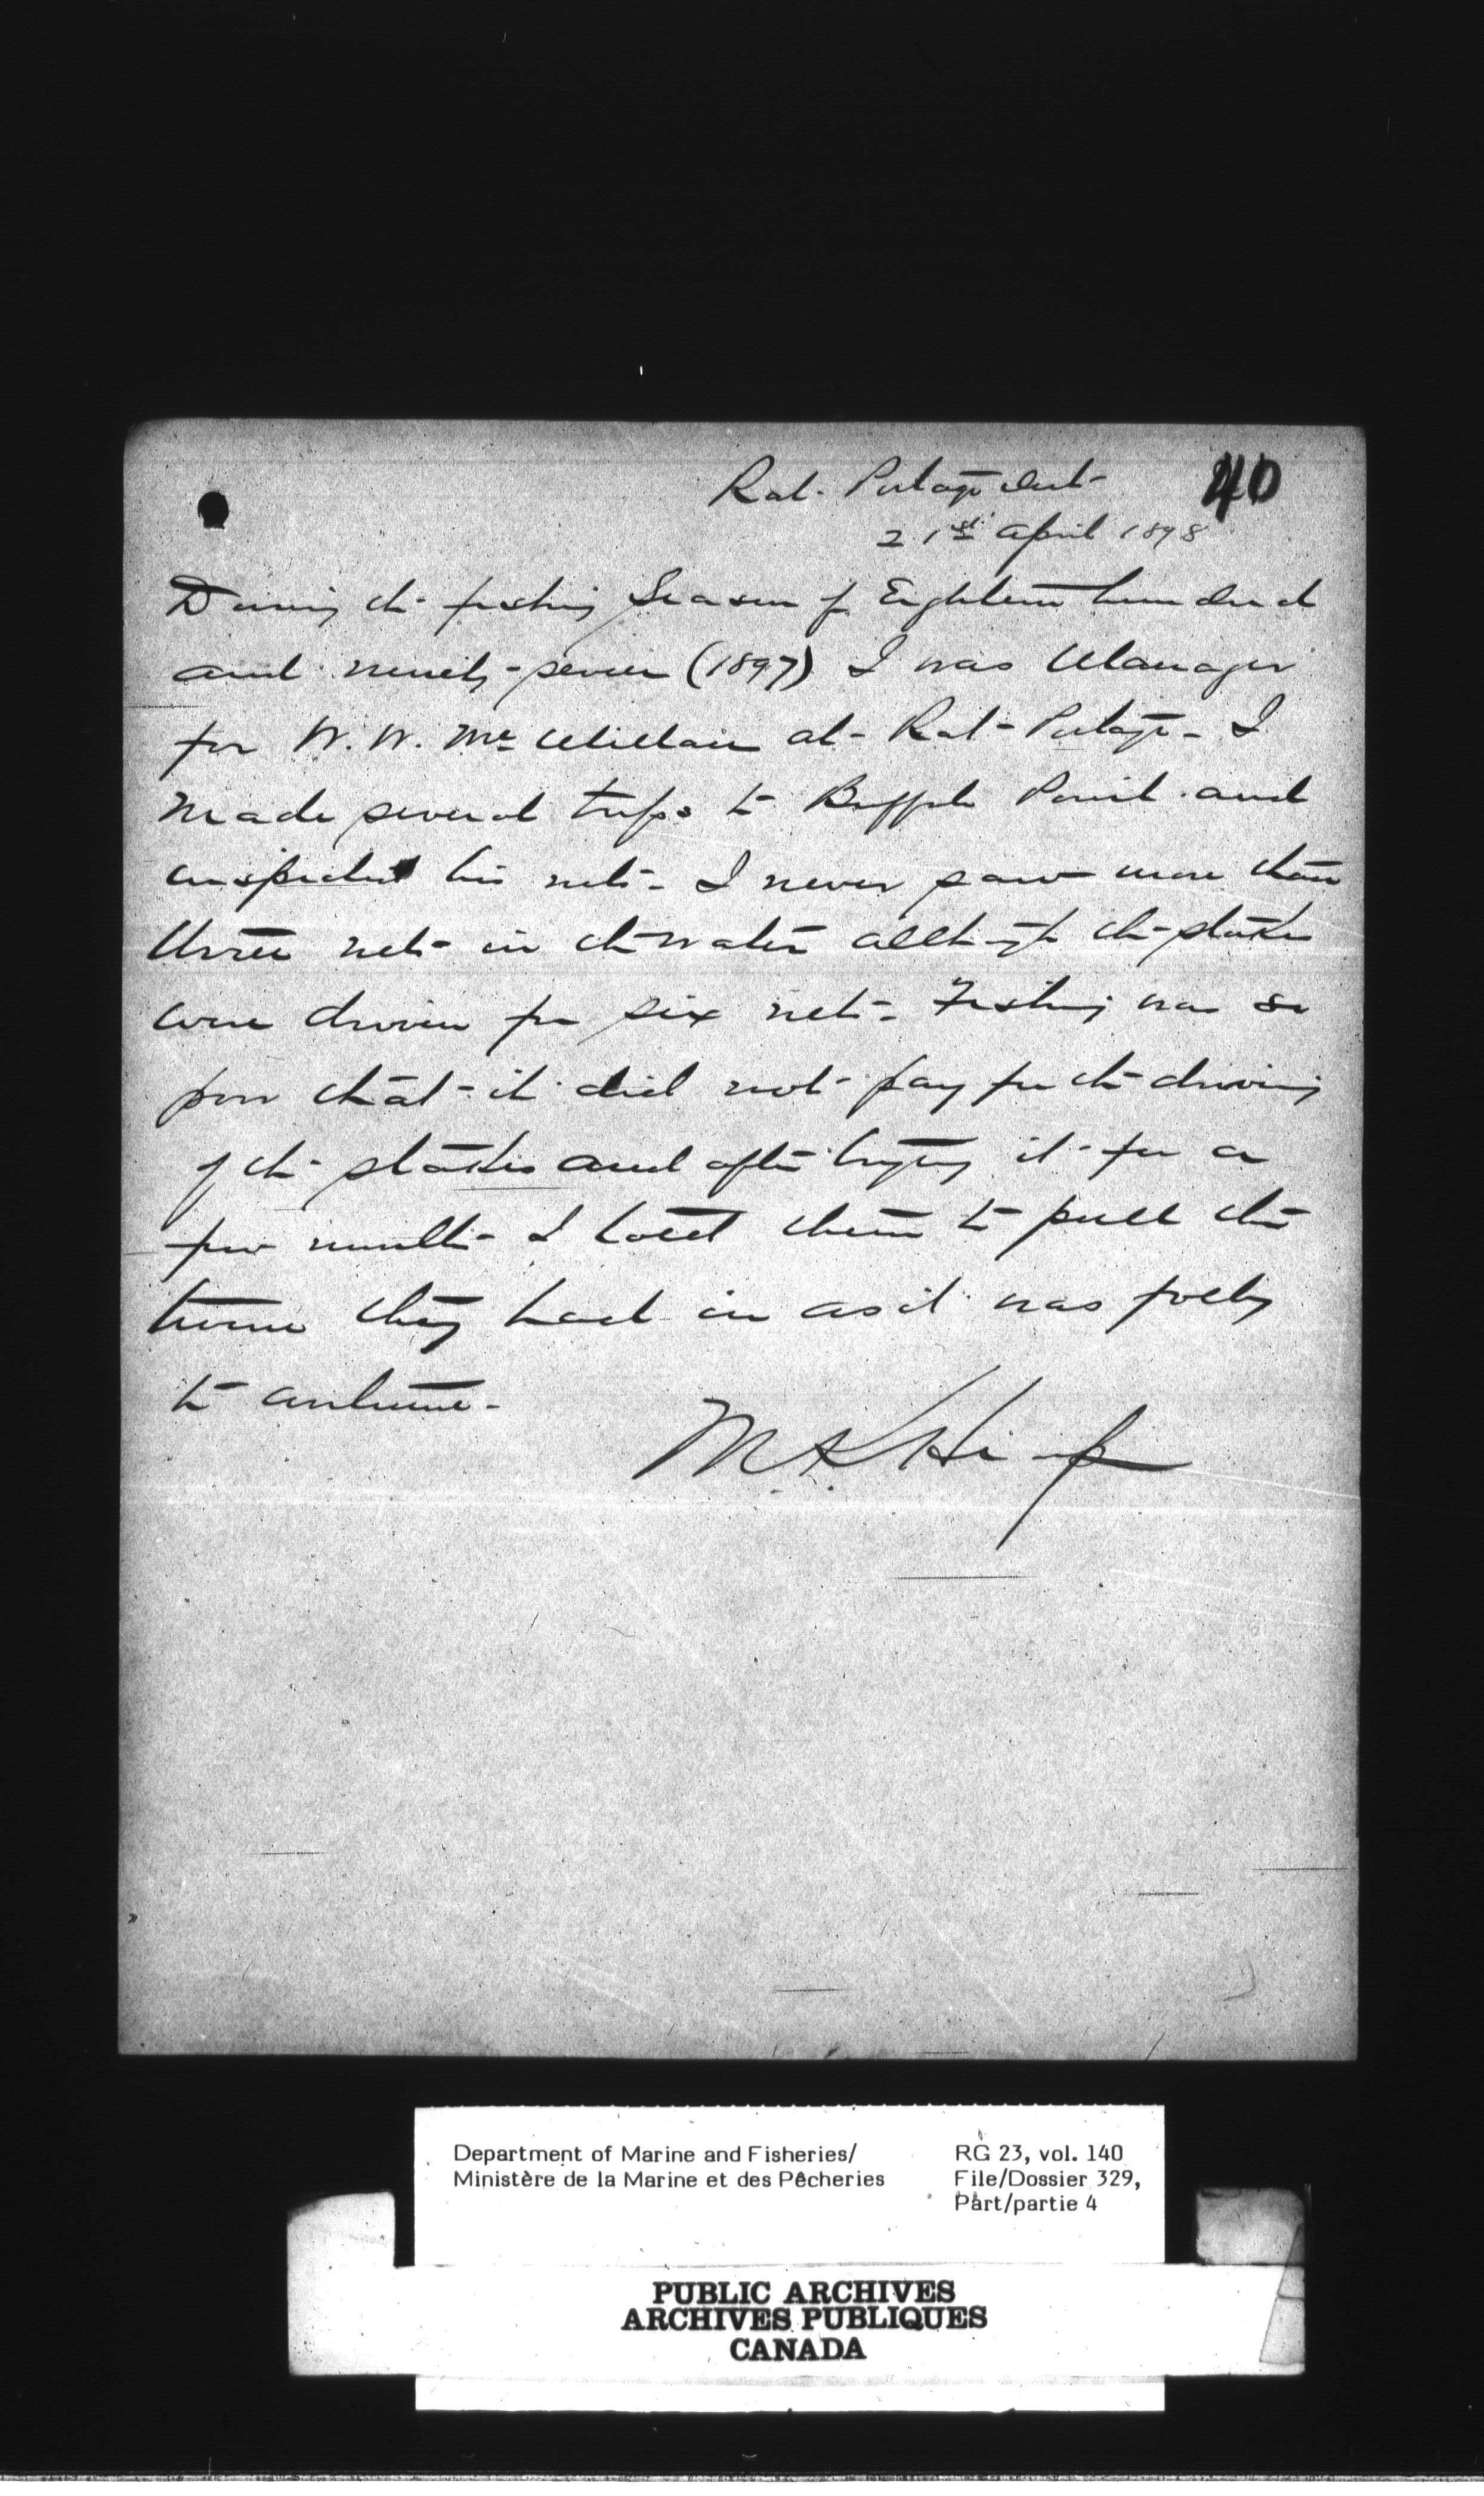 Rat-Portage Ont-
40
21st April 1898
During the fishing Season of Eighteen hundred
and ninety-seven (1897) I was Manager
for W. W. McMillan at Rat-Portage- I
made several trips to Buffalo Point and
inspected his nets- I never saw more than
three nets in the water although the stakes
were driven for six nets- Fishing was so
poor that it did not pay for the driving
of the stakes and after trying it for a
few months I told them to pull the
twine they had in as it was folly
to continue-
M. K.
Department of Marine and Fisheries/
Ministère de la Marine et des Pêcheries
RG 23, vol. 140
File/Dossier 329,
Part/partie 4
PUBLIC ARCHIVES
ARCHIVES PUBLIQUES
CANADA